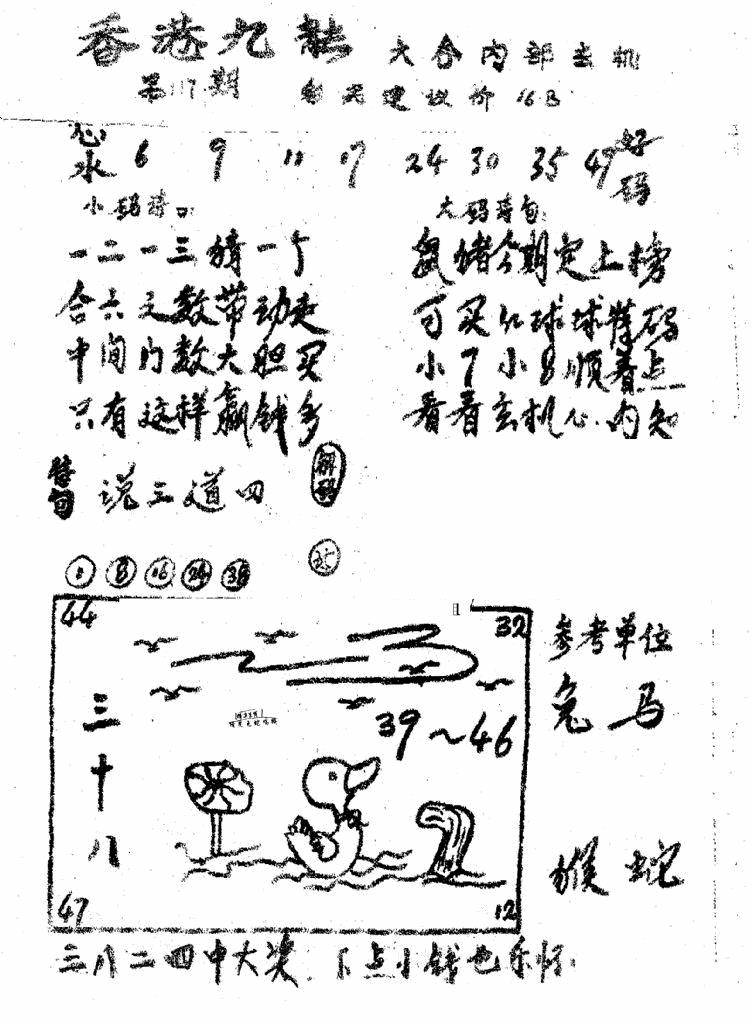 香港九龍 大合内部玄机
第117期 建议价16B
心水 6 9 11 17 24 30 35 49 好码
小码诗:
一二一三猜一个
合六之数带动走
中间门数大胆买
只有这样赢钱多
大码诗句:
鼠猪今期定上榜
可买红球球特码
小7小8顺着点
看看玄机心内知
特句 说三道四 解码
8 16 24 38
44 32
三十八
39~46
47 12
参考单位
兔 马
猴 蛇
三八二四中大奖 下点小钱也乐怀